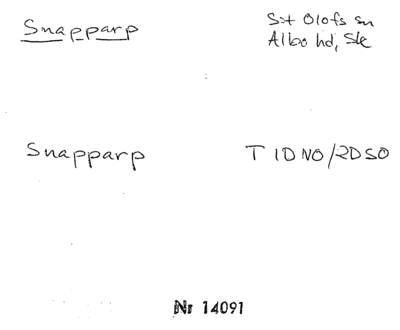 Snapparp
S:t Olofs sn
Albo hd, Sk
Snapparp
T 1D NO/2D SO
Nr 14091